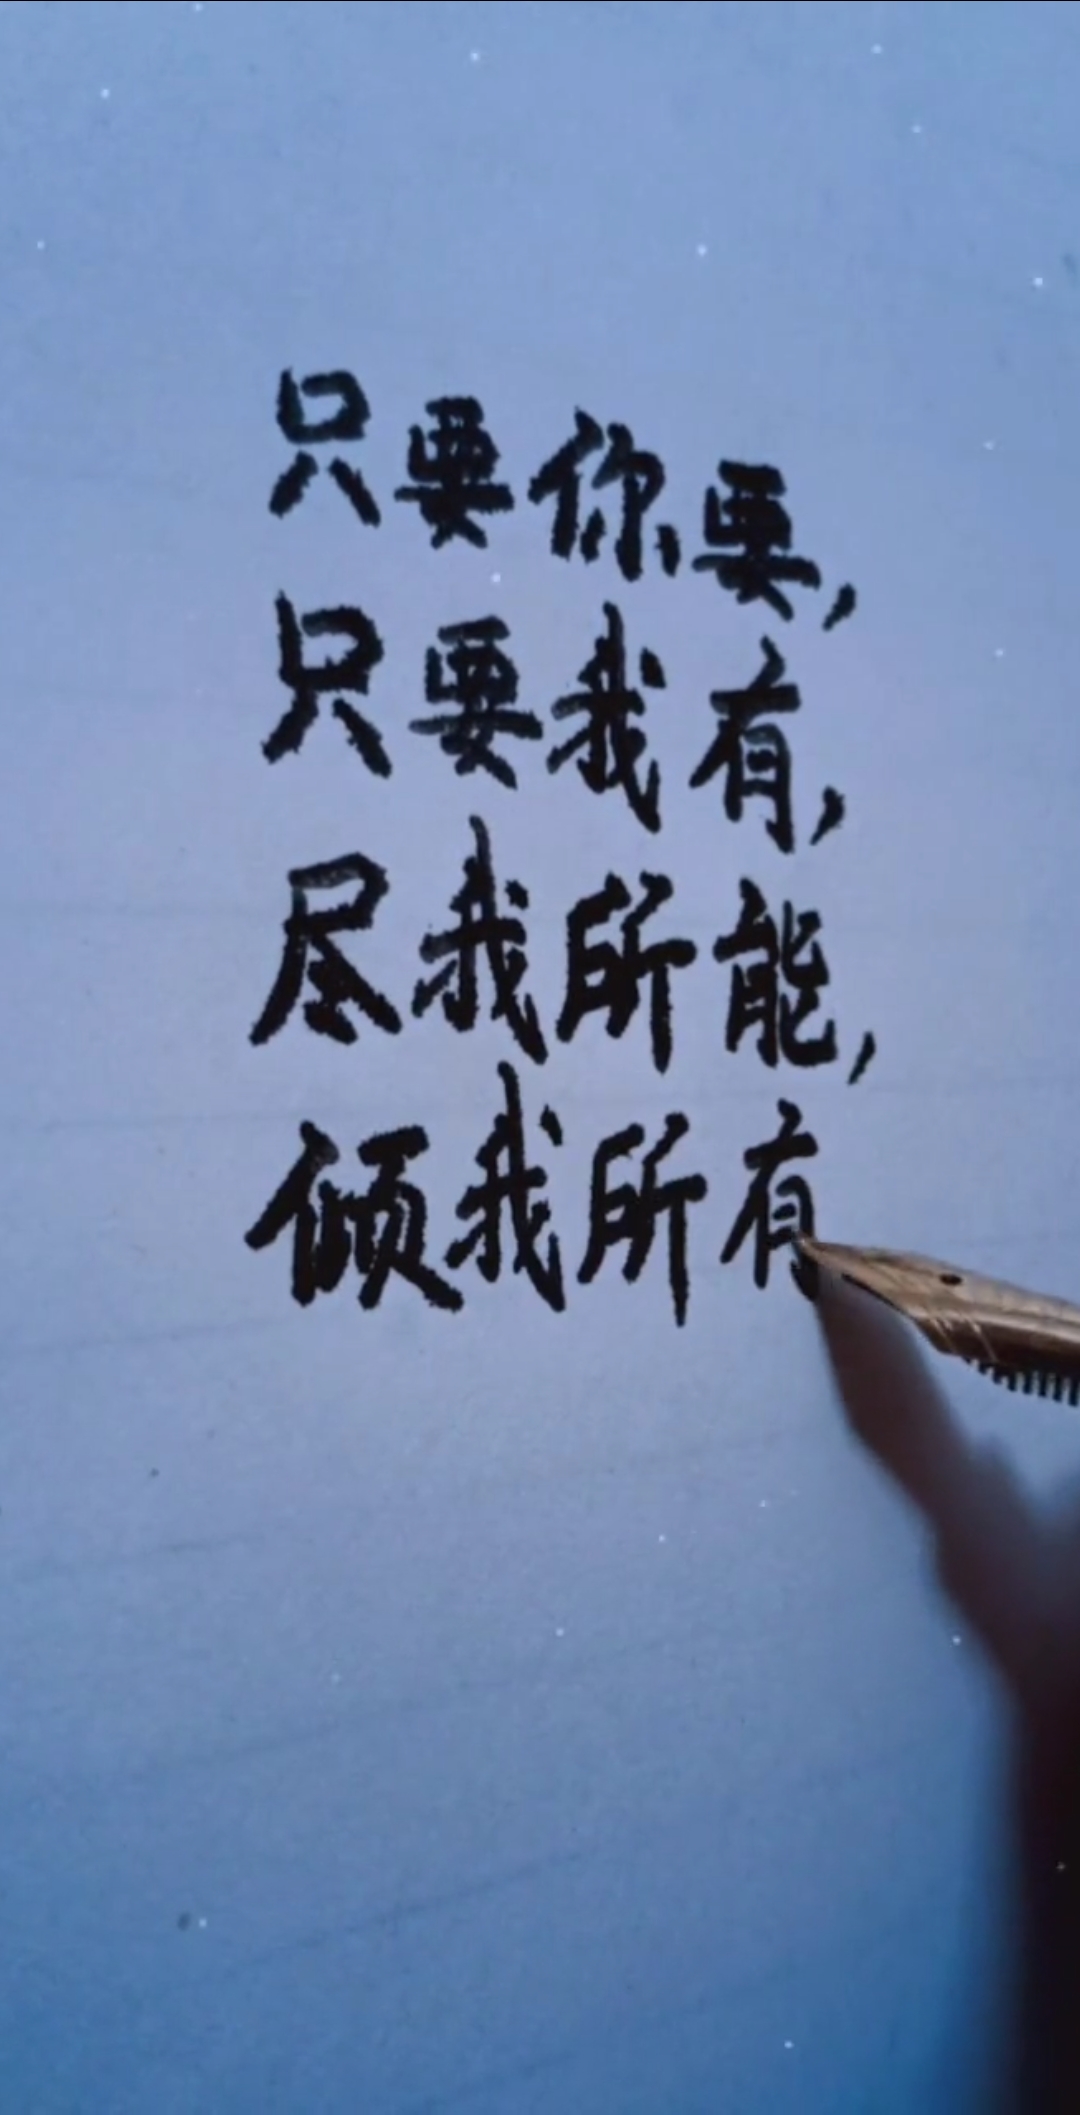 只要你要,
只要我有,
尽我所能,
倾我所有